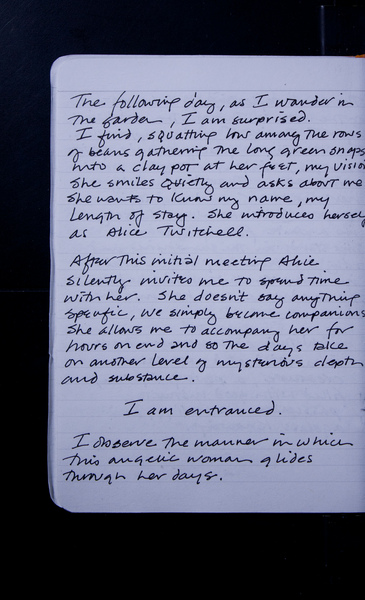 The following day, as I wander in
the garden, I am surprised.
I find, squatting low among the rows
of beans gathering the long green snaps
into a clay pot at her feet, my vision
She smiles quietly and asks about me
She wants to know my name, my
length of stay. She introduces herself
as Alice Twitchell.
After this initial meeting Alice
silently invites me to spend time
with her. She doesn't say anything
specific, we simply become companions
She allows me to accompany her for
hours on end and so the days take
on another level of mysterious depth
and substance.
I am entranced.
I observe the manner in which
this angelic woman glides
through her days.